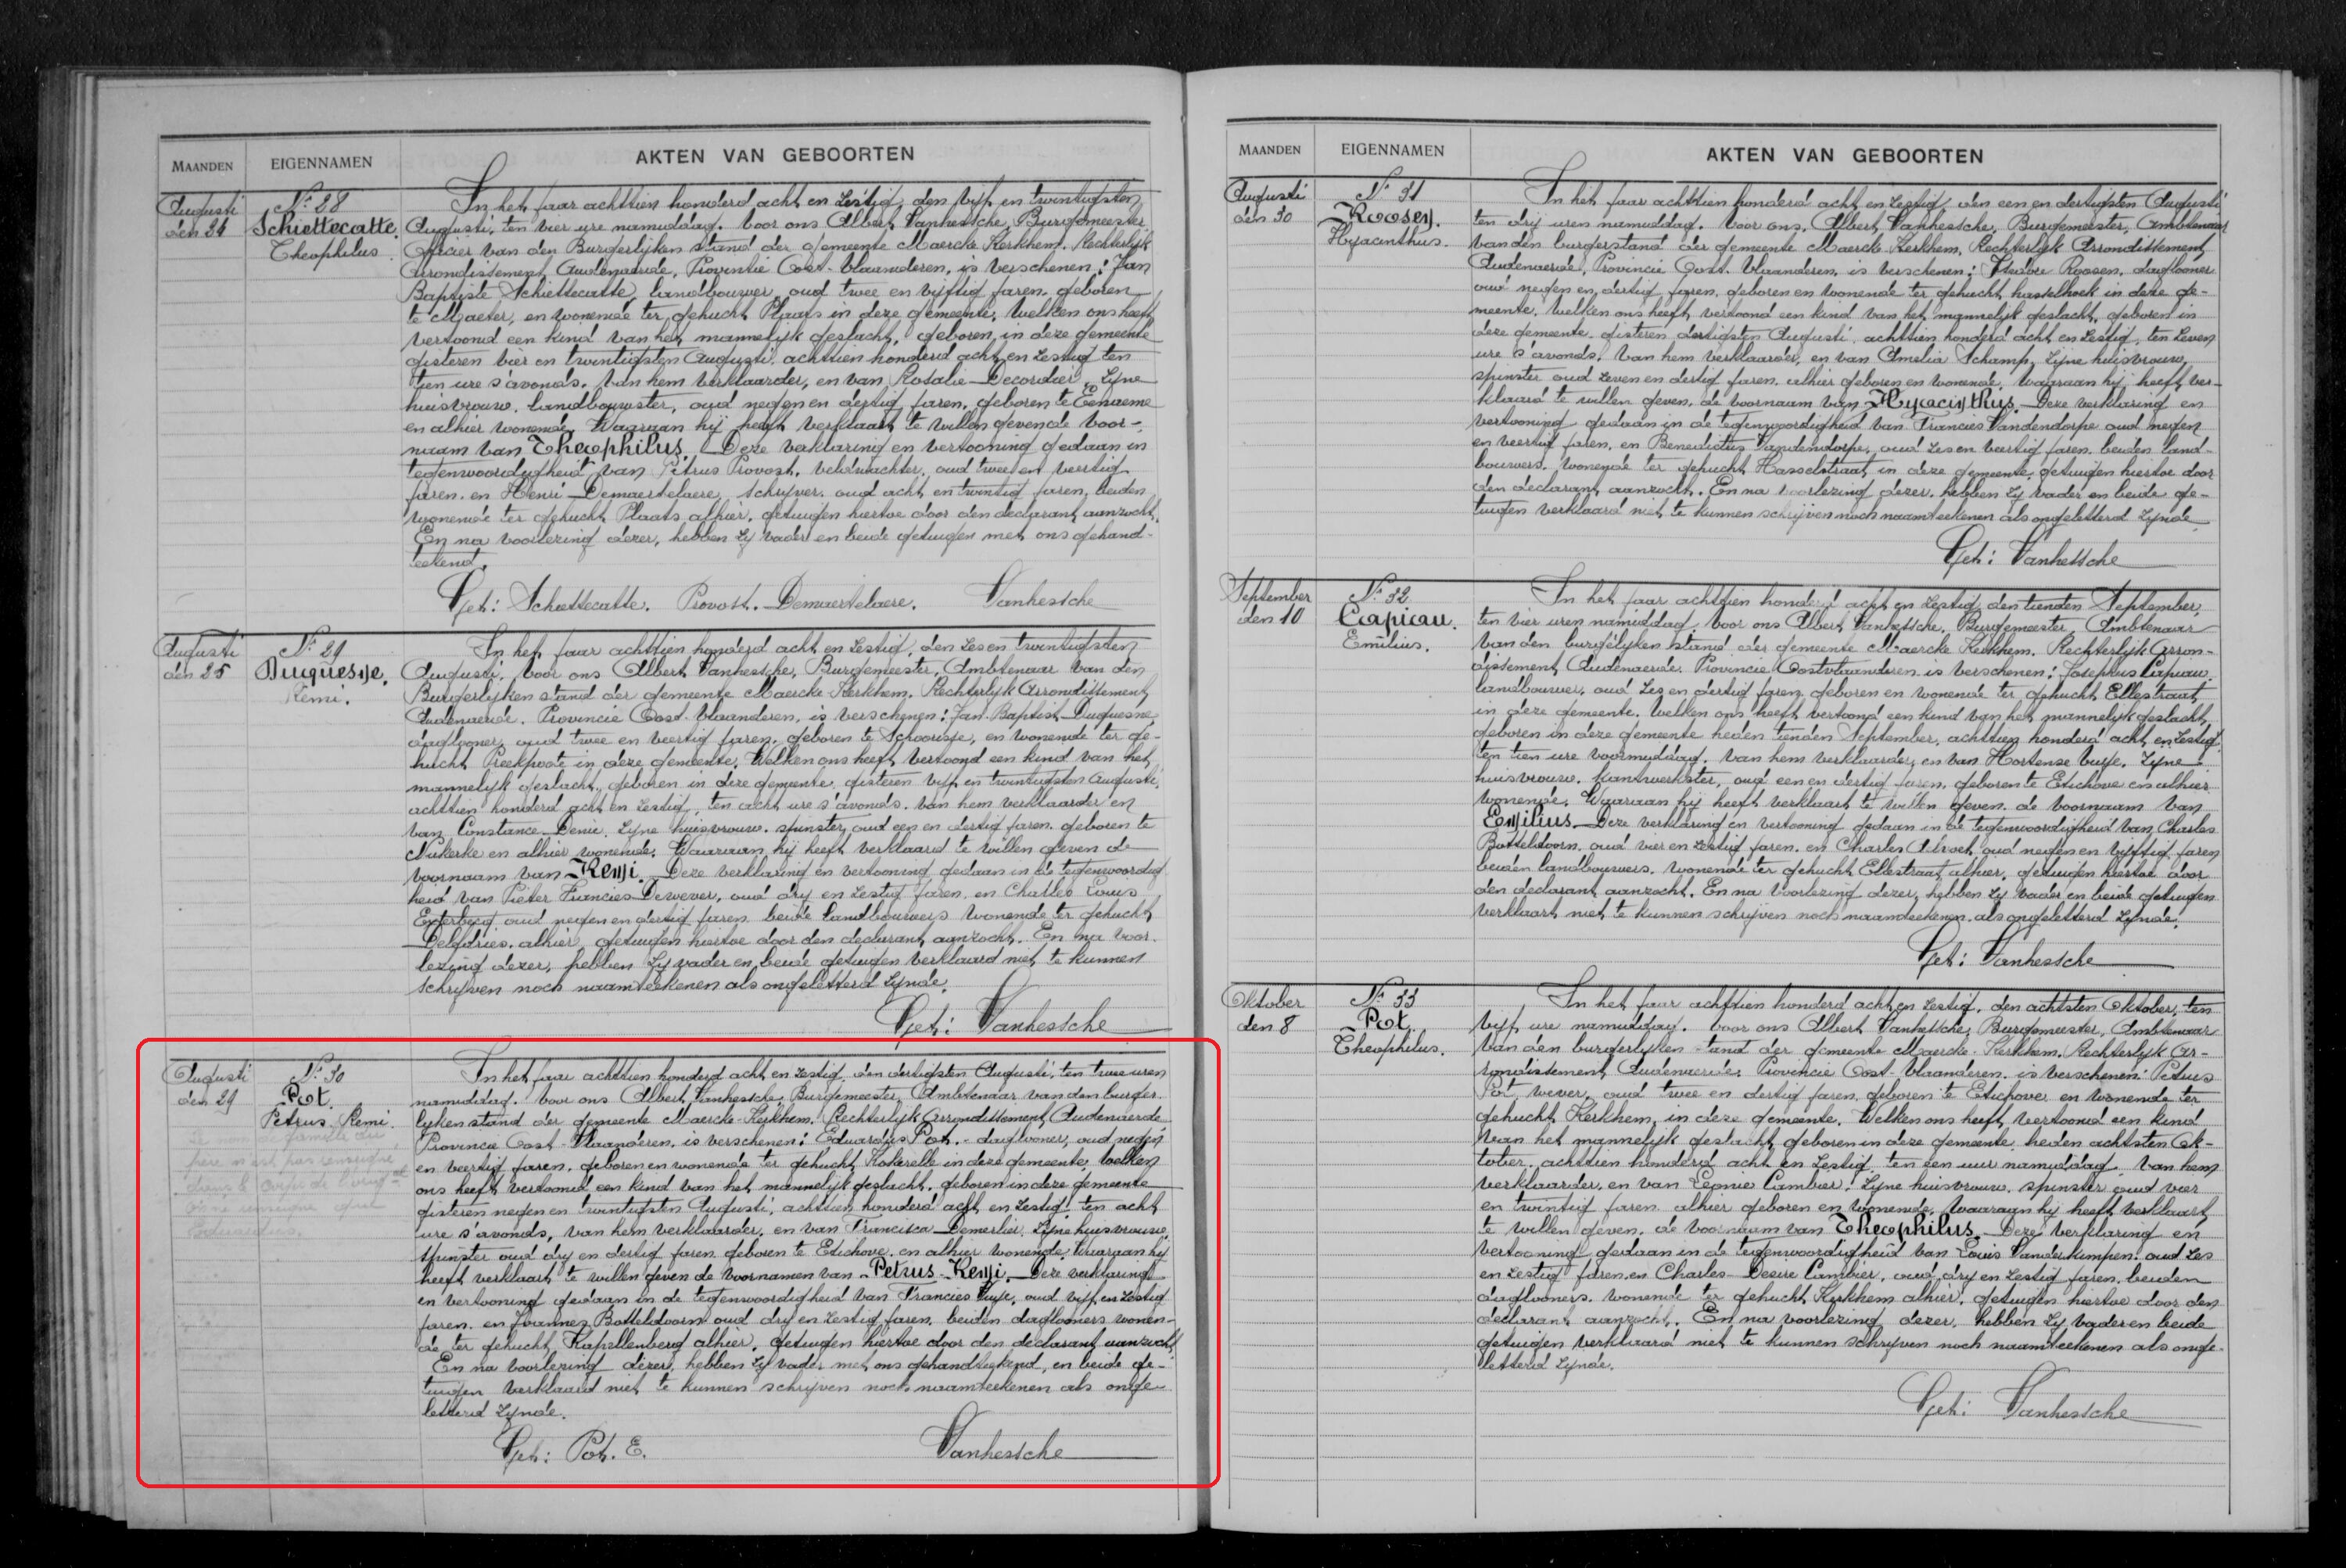 MAANDEN EIGENNAMEN AKTEN VAN GEBOORTEN
Augusti
den 24
N° 28
Schiettecatte.
Theophilus.
In het jaar achttien honderd acht en zestig, den vijf en twintigsten
Augusti, ten vier ure namiddag. Voor ons Albert Vanhessche, Burgemeester
Officier van den Burgerlijken stand der gemeente Maercke Kerkhem. Rechterlijk
Arrondissement Audenaerde, Provintie Oost-Vlaanderen, is verschenen: Jan
Baptiste Schiettecatte, landbouwer, oud twee en vijftig jaren, geboren
te Maeter, en wonende ter gehucht Plaats in deze gemeente, welken ons heeft
vertoond een kind van het mannelijk geslacht, geboren in deze gemeente
gisteren vier en twintigsten Augusti, achttien honderd acht en zestig ten
tien ure s'avonds. Van hem verklaarder, en van Rosalie Decordier, zyne
huisvrouw, landbouwster, oud negen en dertig jaren, geboren te Eename
en alhier wonende, Waaraan hij heeft verklaart te willen geven de voor-
naam van Theophilus. Deze verklaring en vertooning gedaan in
tegenwoordigheid van Petrus Provost, veldwachter, oud twee en veertig
jaren, en Henri Demaertelaere, schrijver, oud acht en twintig jaren, beiden
wonende ter gehucht Plaats alhier, getuigen hiertoe door den declarant aanzocht.
En na voorlezing dezer, hebben zy vader en beide getuigen met ons gehand-
teekend.
Get: Schiettecatte. Provost. Demaertelaere. Vanhessche
Augusti
den 25
N° 29
Duquesne.
Remi.
In het jaar achttien honderd acht en zestig, den zes en twintigsten
Augusti. Voor ons Albert Vanhessche, Burgemeester, Ambtenaar van den
Burgerlijken stand der gemeente Maercke Kerkhem. Rechterlijk Arrondissement
Audenaerde. Provincie Oost-Vlaanderen, is verschenen: Jan Baptist Duquesne,
daglooner, oud twee en veertig jaren, geboren te Schoorisse, en wonende ter ge-
hucht Preekpoote in deze gemeente, Welken ons heeft vertoond een kind van het
mannelijk geslacht, geboren in deze gemeente, gisteren vijf en twintigsten Augusti,
achttien honderd acht en zestig, ten acht ure s'avonds. van hem verklaarder en
van Constance Denie, zyne huisvrouw, spinster, oud een en dertig jaren, geboren te
Nukerke en alhier wonende. Waaraan hij heeft verklaard te willen geven de
voornaam van Remi. Deze verklaring en vertooning gedaan in de tegenwoordig
heid van Pieter Francies Dewever, oud dry en zestig jaren, en Charles Louis
oud negen en dertig jaren, beide landbouwers wonende ter gehucht
alhier, getuigen hiertoe door den declarant aanzocht. En na voor-
lezing dezer, hebben zy vader en beide getuigen verklaard niet te kunnen
schrijven noch naamteekenen als ongeletterd zynde.
Get: Vanhessche
Augusti
den 29
N° 30
Pot.
Petrus Remi.
Le nom de famille du
père n'est pas renseigné
dans le corps de l'orig-al
on ne renseigne que
Eduardus.
In het jaar achttien honderd acht en zestig, den dertigsten Augusti, ten twee uren
namiddag. Voor ons Albert Vanhessche, Burgemeester, Ambtenaar van den burger-
lyken stand der gemeente Maercke-Kerkhem, Rechterlijk Arrondissement, Audenaerde
Provincie Oost-Vlaanderen, is verschenen: Eduardus Pot, daglooner, oud negen
en veertig jaren, geboren en wonende ter gehucht Kokerelle in deze gemeente, welken
ons heeft vertoond een kind van het mannelijk geslacht, geboren in deze gemeente
gisteren negen en twintigsten Augusti, achttien honderd acht en zestig, ten acht
ure s'avonds, van hem verklaarder, en van Francisca Demerlier, zyne huisvrouw,
spinster oud dry en dertig jaren, geboren te Etichove, en alhier wonende, Waaraan hij
heeft verklaart te willen geven de voornamen van Petrus-Remi. Deze verklaring
en vertooning gedaan in de tegenwoordigheid van Francies Buye, oud vijf en zestig
jaren, en Joannes Botteldoorn oud dry en zestig jaren, beiden daglooners wonen-
de ter gehucht Kapellenberg alhier, getuigen hiertoe door den declarant aanzocht
En na voorlezing dezer, hebben zij vader met ons gehandteekend, en beide ge-
tuigen verklaard niet te kunnen schrijven noch naamteekenen als onge-
letterd zynde.
Get: Pot. E. Vanhessche
MAANDEN EIGENNAMEN AKTEN VAN GEBOORTEN
Augusti
den 30
N° 31
Roosen.
Hyacinthus.
In het jaar achttien honderd acht en zestig, den een en dertigsten Augusti
ten dry uren namiddag. Voor ons, Albert Vanhessche, Burgemeester, Ambtenaar
van den burgerstand der gemeente Maercke Kerkhem, Rechterlijk Arrondissement,
Audenaerde, Provincie Oost-Vlaanderen, is verschenen: Isidor Roosen, daglooner
oud negen en dertig jaren, geboren en wonende ter gehucht hasselhoek in deze ge-
meente, welken ons heeft vertoond een kind van het mannelijk geslacht, geboren in
deze gemeente, gisteren dertigsten Augusti, achttien honderd acht en zestig, ten zeven
ure s'avonds. Van hem verklaarder, en van Amelia Schamp, zyne huisvrouw,
spinster oud zeven en dertig jaren, alhier geboren en wonende, waaraan hij heeft ver-
klaard te willen geven, de voornaam van Hyacinthus. Deze verklaring en
vertooning gedaan in de tegenwoordigheid van Francies Vandendorpe oud negen
en veertig jaren, en Benedictus Vandendorpe, oud zes en veertig jaren, beiden land-
bouwers, wonende ter gehucht Hasselstraat in deze gemeente, getuigen hiertoe door
den declarant aanzocht. En na voorlezing dezer, hebben zy vader en beide ge-
tuigen verklaard niet te kunnen schrijven noch naamteekenen als ongeletterd zynde
Get: Vanhessche
September
den 10
N° 32
Capiau.
Emilius.
In het jaar achttien honderd acht en zestig, den tienden September,
ten vier uren namiddag, Voor ons Albert Vanhessche, Burgemeester, Ambtenaar
van den burgelijken stand der gemeente Maercke Kerkhem. Rechterlijk Arron-
dissement, Audenaerde. Provincie Oostvlaanderen is verschenen: Josephus Capiau
landbouwer, oud zes en dertig jaren, geboren en wonende ter gehucht Ellestraat
in deze gemeente. Welken ons heeft vertoond een kind van het mannelijk geslacht,
geboren in deze gemeente heden tienden September, achttien honderd acht en zestig
ten tien ure voormiddag. van hem verklaarder, en van Hortense buye, zyne
huisvrouw, kantwerkster, oud een en dertig jaren, geboren te Etichove en alhier
wonende. Waaraan hij heeft verklaart te willen geven de voornaam van
Emilius. Deze verklaring en vertooning gedaan in de tegenwoordigheid van Charles
Botteldoorn, oud vier en zestig jaren, en Charles oud negen en vijftig jaren
beiden landbouwers, wonende ter gehucht Ellestraat alhier, getuigen hiertoe door
den declarant aanzocht. En na voorlezing dezer, hebben zy vader en beide getuigen
verklaart niet te kunnen schrijven noch naamteekenen als ongeletterd zynde.
Get: Vanhessche
Oktober
den 8
N° 33
Pot.
Theophilus.
In het jaar achttien honderd acht en zestig, den achtsten Oktober, ten
vijf ure namiddag. Voor ons Albert Vanhessche, Burgemeester, Ambtenaar
van den burgerlyken stand der gemeente Maercke-Kerkhem, Rechterlyk Ar-
rondissement Audenaerde. Provincie Oost-Vlaanderen, is verschenen: Petrus
Pot wever, oud twee en dertig jaren, geboren te Etichove en wonende ter
gehucht Kerkhem, in deze gemeente. Welken ons heeft vertoond een kind
van het mannelijk geslacht, geboren in deze gemeente, heden achtsten Ok-
tober, achttien honderd acht en zestig, ten een uur namiddag. Van hem
verklaarder, en van Leonie Cambier, zyne huisvrouw, spinster oud vier
en twintig jaren, alhier geboren en wonende. Waaraan hij heeft verklaart
te willen geven, de voornaam van Theophilus. Deze verklaring en
vertooning gedaan in de tegenwoordigheid van Louis Vanderkimpen, oud zes
en zestig jaren, en Charles-Desire Cambier, oud dry en zestig jaren, beiden
daglooners, wonende ter gehucht Kerkhem alhier, getuigen hiertoe door den
declarant aanzocht. En na voorlezing dezer, hebben zy vader en beide
getuigen verklaard niet te kunnen schrijven noch naamteekenen als onge-
letterd zynde.
Get: Vanhessche